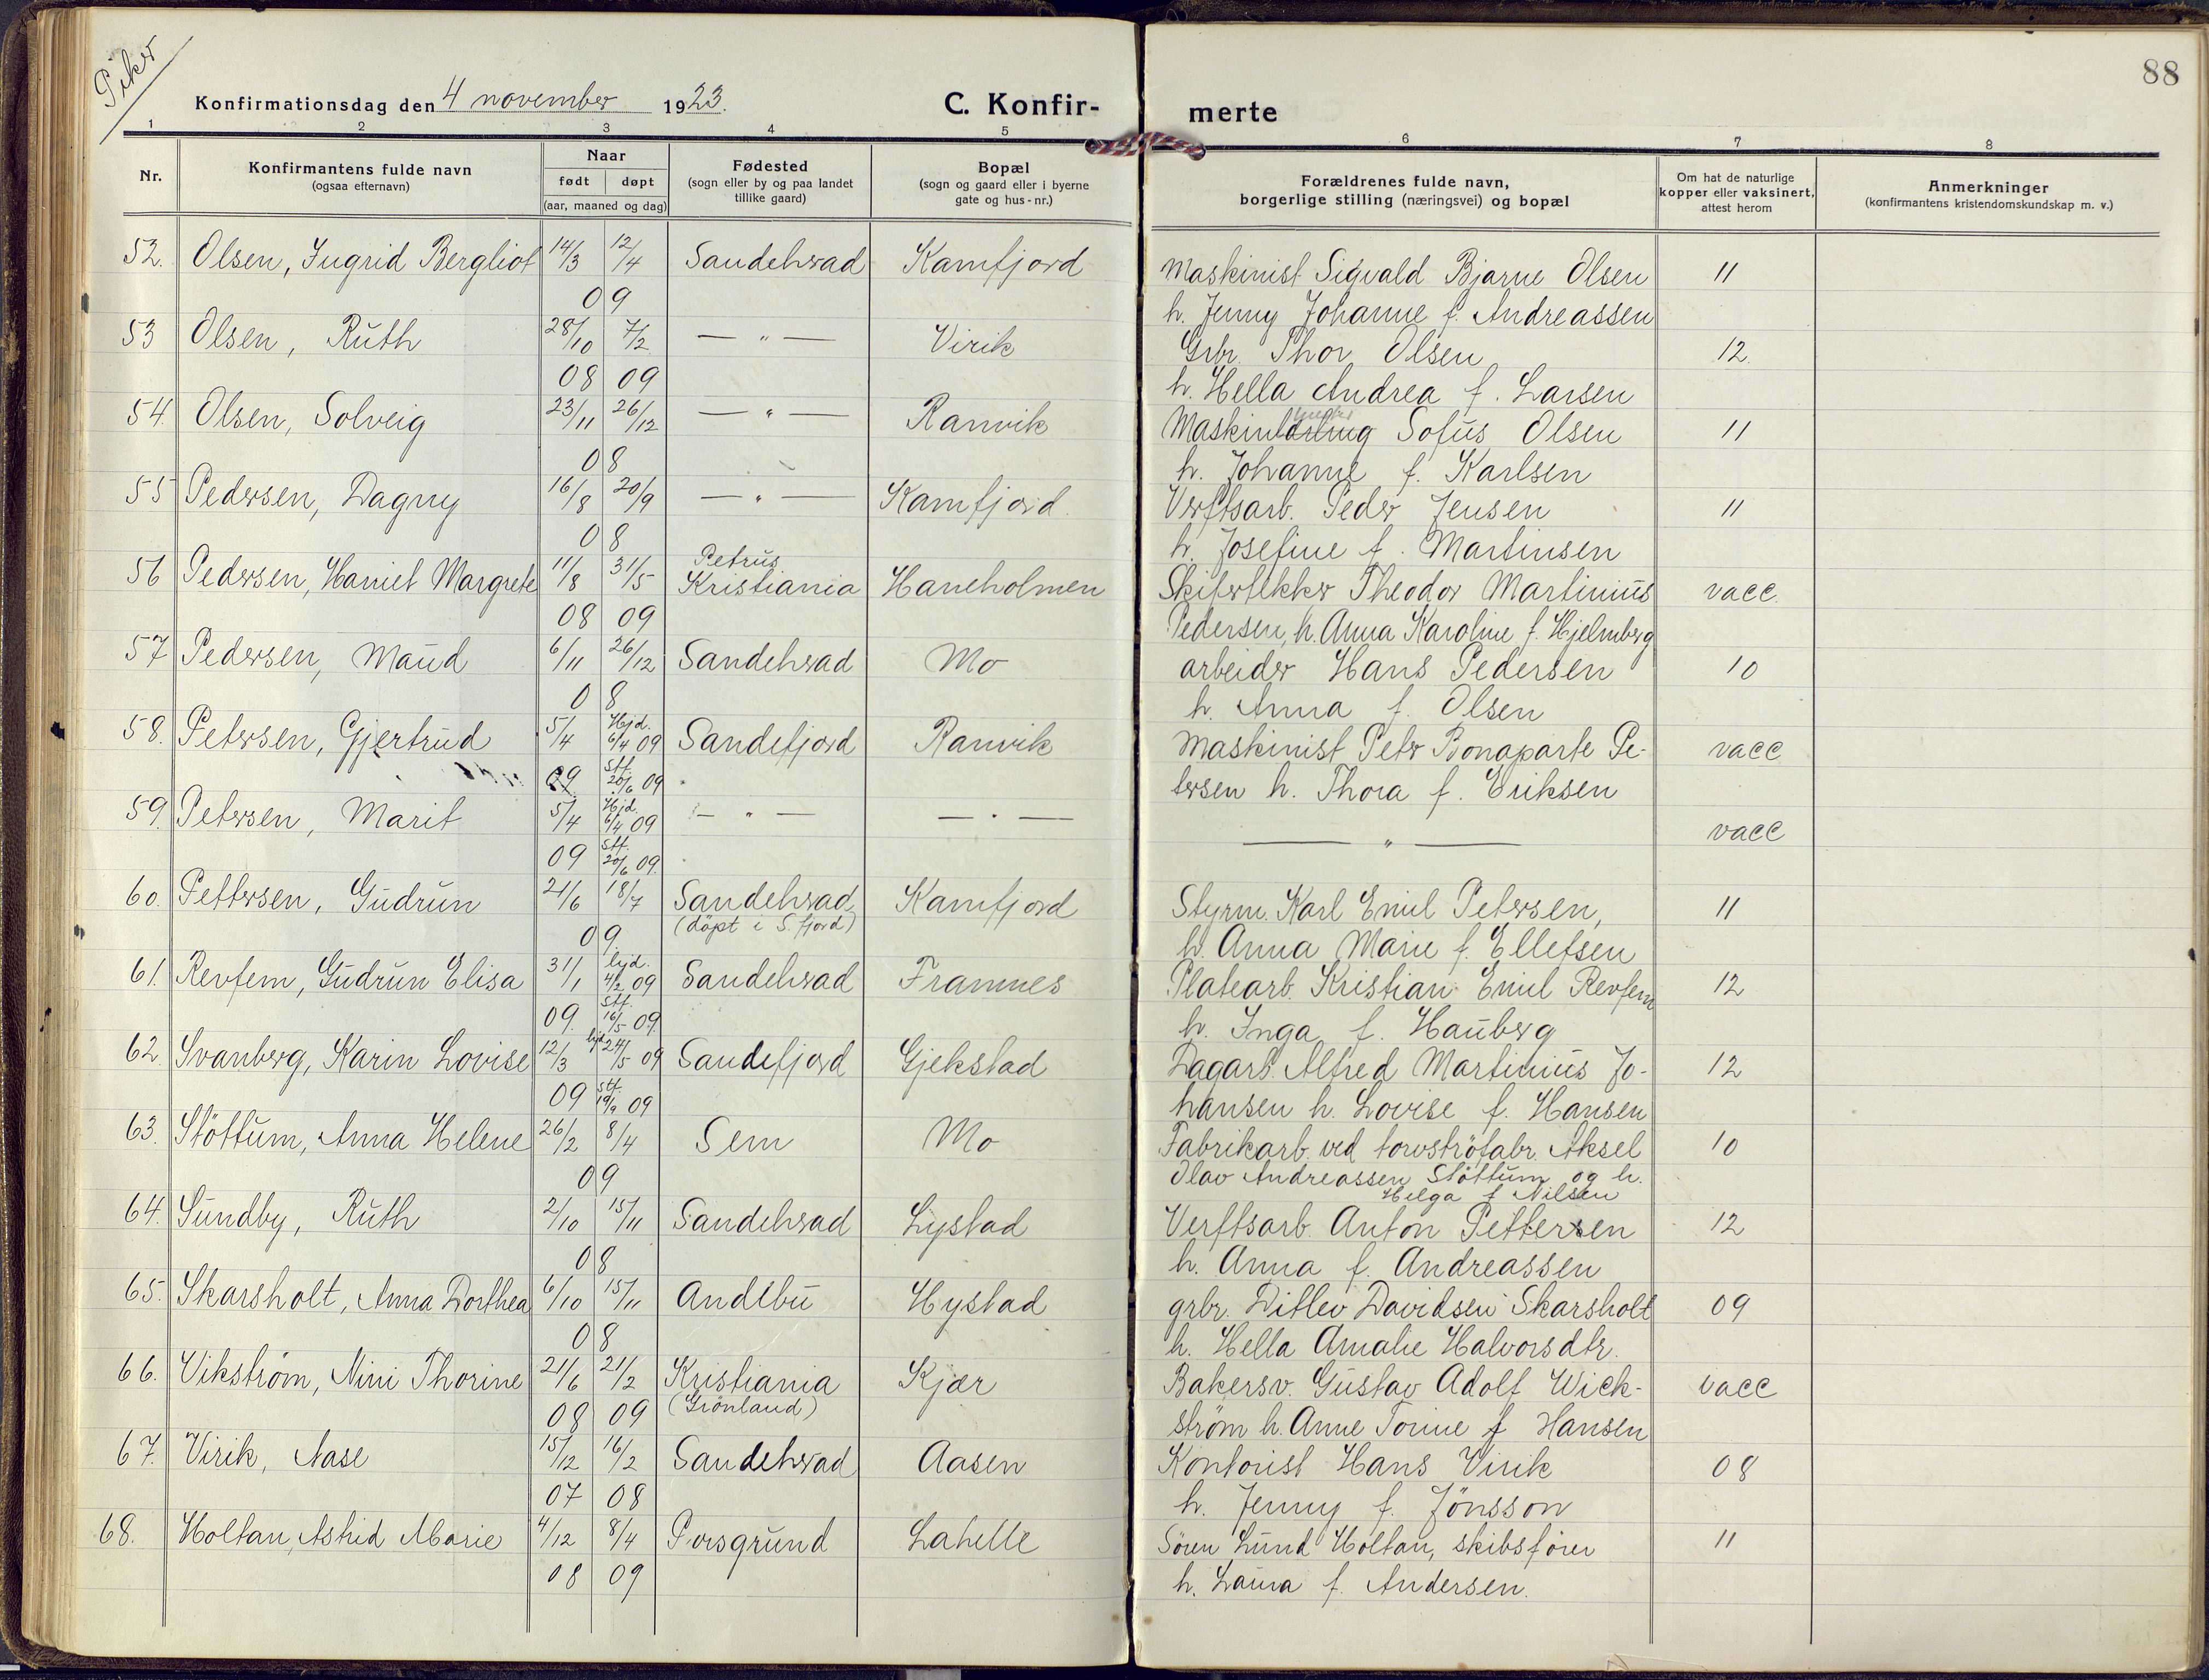 Piker
88
Konfirmationsdag den 4 november 1923.
C. Konfir-
merte
1 2 3 4 5 6 7 8
Nr.
Konfirmantens fulde navn
(ogsaa efternavn)
Naar
født døpt
(aar, maaned og dag)
Fødested
(sogn eller by og paa landet
tillike gaard)
Bopæl
(sogn og gaard eller i byerne
gate og hus-nr.)
Forældrenes fulde navn,
borgerlige stilling (næringsvei) og bopæl
Om hat de naturlige
kopper eller vaksinert,
attest herom
Anmerkninger
(konfirmantens kristendomskundskap m. v.)
52. Olsen, Ingrid Bergliot 14/3 12/4 Sandehrad Kamfjord Maskinist Sigvald Bjarne Olsen 11
09 h. Jenny Johanne f. Andreassen
53 Olsen, Ruth 28/10 7/2 — " — Virik Grbr. Thor Olsen 12.
08 09 h. Hella Andrea f. Larsen
54. Olsen, Solveig 23/11 26/12 — " — Ranvik Maskin Sofus Olsen 11
08 h. Johanne f. Karlsen
55 Pedersen, Dagny 16/8 20/9 — " — Kamfjord. Verftsarb. Peder Jensen 11
08 h. Josefine f. Martinsen
56 Pedersen, Harriet Margrete 11/8 31/5 Petrus Kristiania Haneholmen Skifertekker Theodor Martinius vacc.
08 09 Pedersen, h. Anna Karoline f. Hjelmberg
57 Pedersen, Maud 6/11 26/12 Sandehrad Mo arbeider Hans Pedersen 10
08 h. Anna f. Olsen
58. Petersen, Gjertrud 5/4 Hjd. 6/4 09 Sandefjord Ranvik Maskinist Peter Bonaparte Pe- vacc
09 Stf. 20/6 09 tersen h. Thora f. Eriksen
59. Petersen, Marit 5/4 Hjd. 6/4 09 — " — — " — — " — vacc
09 Stf. 20/6 09.
60. Pettersen, Gudrun 21/6 18/7 Sandehrad Kamfjord Styrm. Karl Emil Petersen, 11
09 (döpt i S.fjord) h. Anna Marie f. Ellefsen
61. Revfem, Gudrun Elisa 31/1 hjd. 4/2 09 Sandehrad Framnes Platearb. Kristian Emil Revfem 12
09. Stf. 16/5 09. h. Inga f. Hauberg
62 Svanberg, Karin Lovise 12/3 hjd 24/5 09 Sandefjord Gjekstad Dagarb. Alfred Martinius Jo- 12
09 Stf. 19/9 09 hansen h. Lovise f. Hansen
63. Stöttum, Anna Helene 26/2 8/4 Sem Mo Fabrikarb. ved torvströfabr. Aksel 10
09 Olav Andreassen Stöttum og h.
Helga f Nilsen
64. Sundby, Ruth 2/10 15/11 Sandehrad Lystad Verftsarb. Anton Pettersen 12
08 h. Anna f. Andreassen
65. Skarsholt, Anna Dorthea 6/10 15/11 Andebu Hystad grbr. Ditlev Davidsen Skarsholt 09
08 h. Hella Amalie Halvorsdtr.
66. Vikström, Nini Thorine 21/6 21/2 Kristiania Kjær Bakersv. Gustav Adolf Wick- vacc
08 09 (Grönland) ström h. Anne Torine f Hansen
67. Virik, Aase 15/12 16/2 Sandehrad Aasen Kontorist Hans Virik 08
07 08 h. Jenny f. Jönsson
68. Holtan, Astrid Marie 4/12 8/4 Porsgrund Lahelle Sören Lund Holtan, skibsfører 11
08 09 h. Laura f. Andersen.